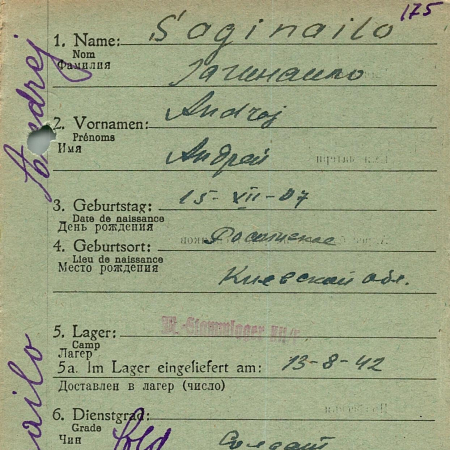 175
1. Name: Saginailo
Nom
Фамилия
Загинаило
Andrej
2. Vornamen:
Prénoms
Имя
Андрей
3. Geburtstag: 15-XII-07
Date de naissance
День рождения
4. Geburtsort:
Lieu de naissance
Место рождения
Киевской обл.
5. Lager:
Camp
Лагерь
5a. Im Lager eingeliefert am: 13-8-42
Доставлен в лагерь (число)
6. Dienstgrad:
Grade
Чин
Sold
Солдат
Andrej
ailo